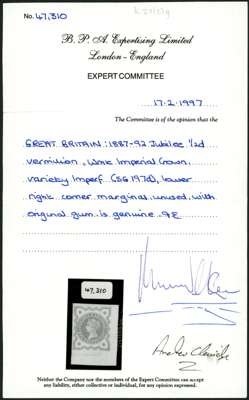 No. 47,310
B. P. A. Expertising Limited
London - England
EXPERT COMMITTEE
17.2.1997
The Committee is of the opinion that the
GREAT BRITAIN: 1887-92 Jubilee ½d
vermilion, Wmk Imperial Crown,
variety Imperf (SG 197d), lower
right corner marginal unused with
original gum is genuine
47,310
Neither the Company nor the members of the Expert Committee can accept
any liability, either collective or individual, for any opinion expressed.